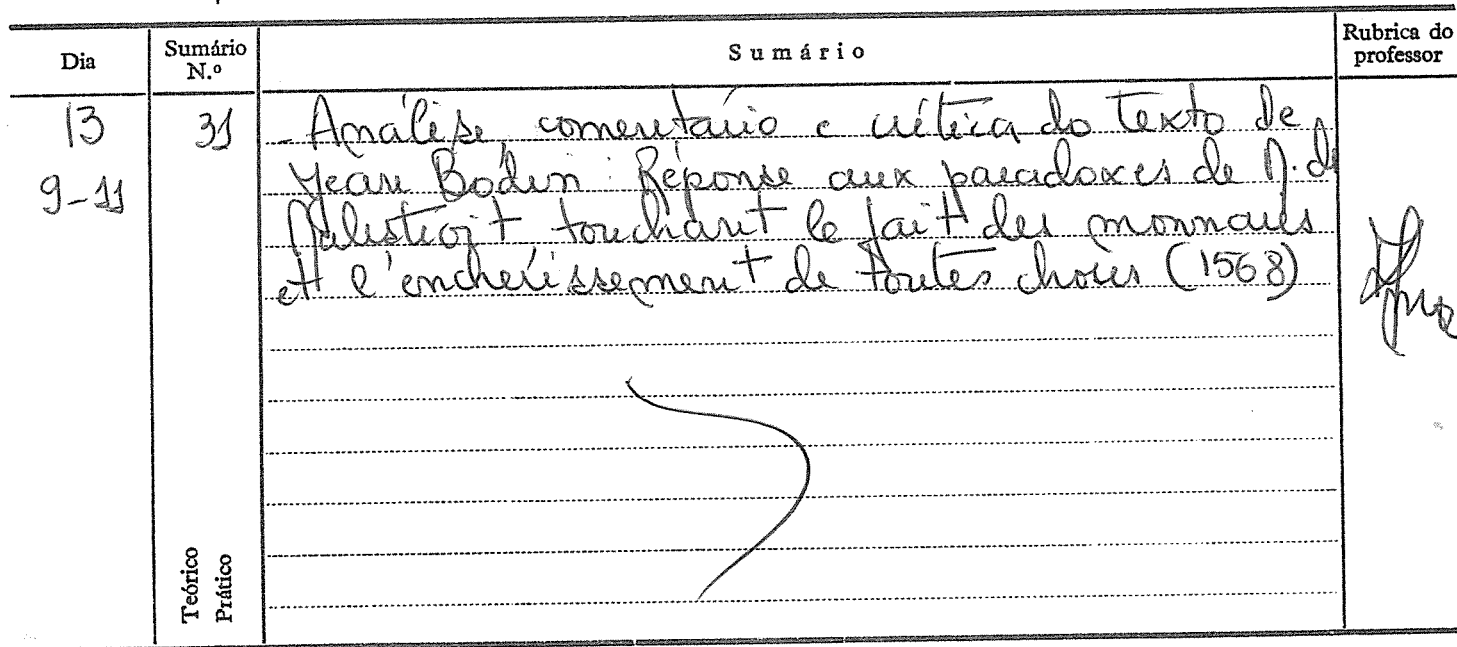 Dia Sumário N.º Sumário Rubrica do professor
13 31 - Análise, comentário e crítica do texto de
9-11 Jean Bodin: Réponse aux paradoxes de M. de
Malestroit touchant le fait des monnaies
et l'enchérissement de toutes choses (1568)
Teórico
Prático